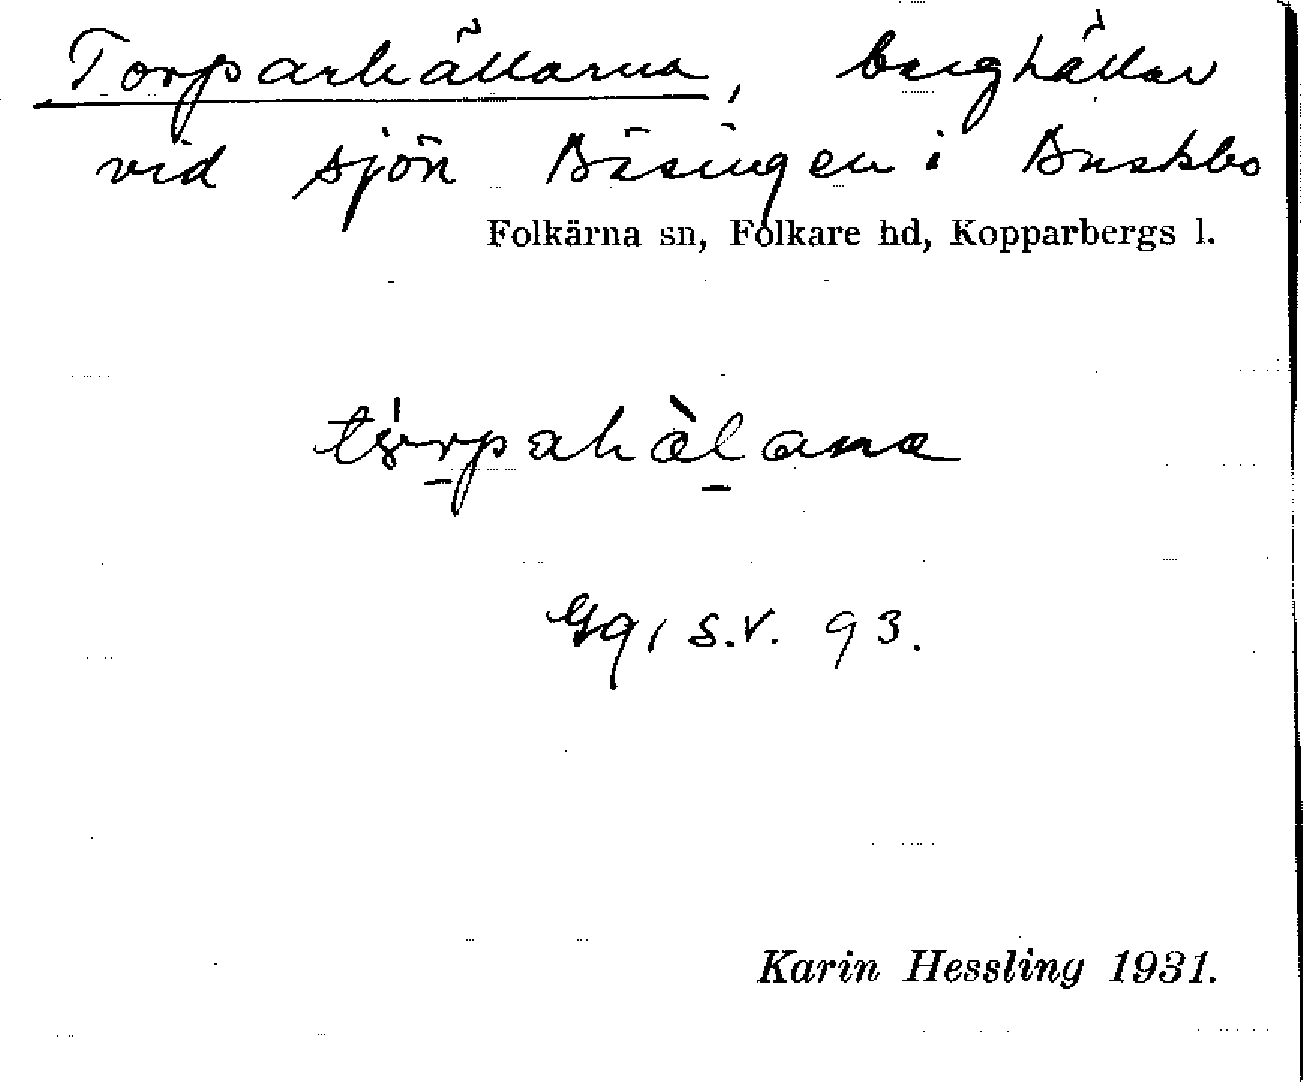 Torparhällarna, berghällar
vid sjön Bäsingen i Buskbo
Folkärna sn, Folkare hd, Kopparbergs l.
Gq, s.v. 93.
Karin Hessling 1931.